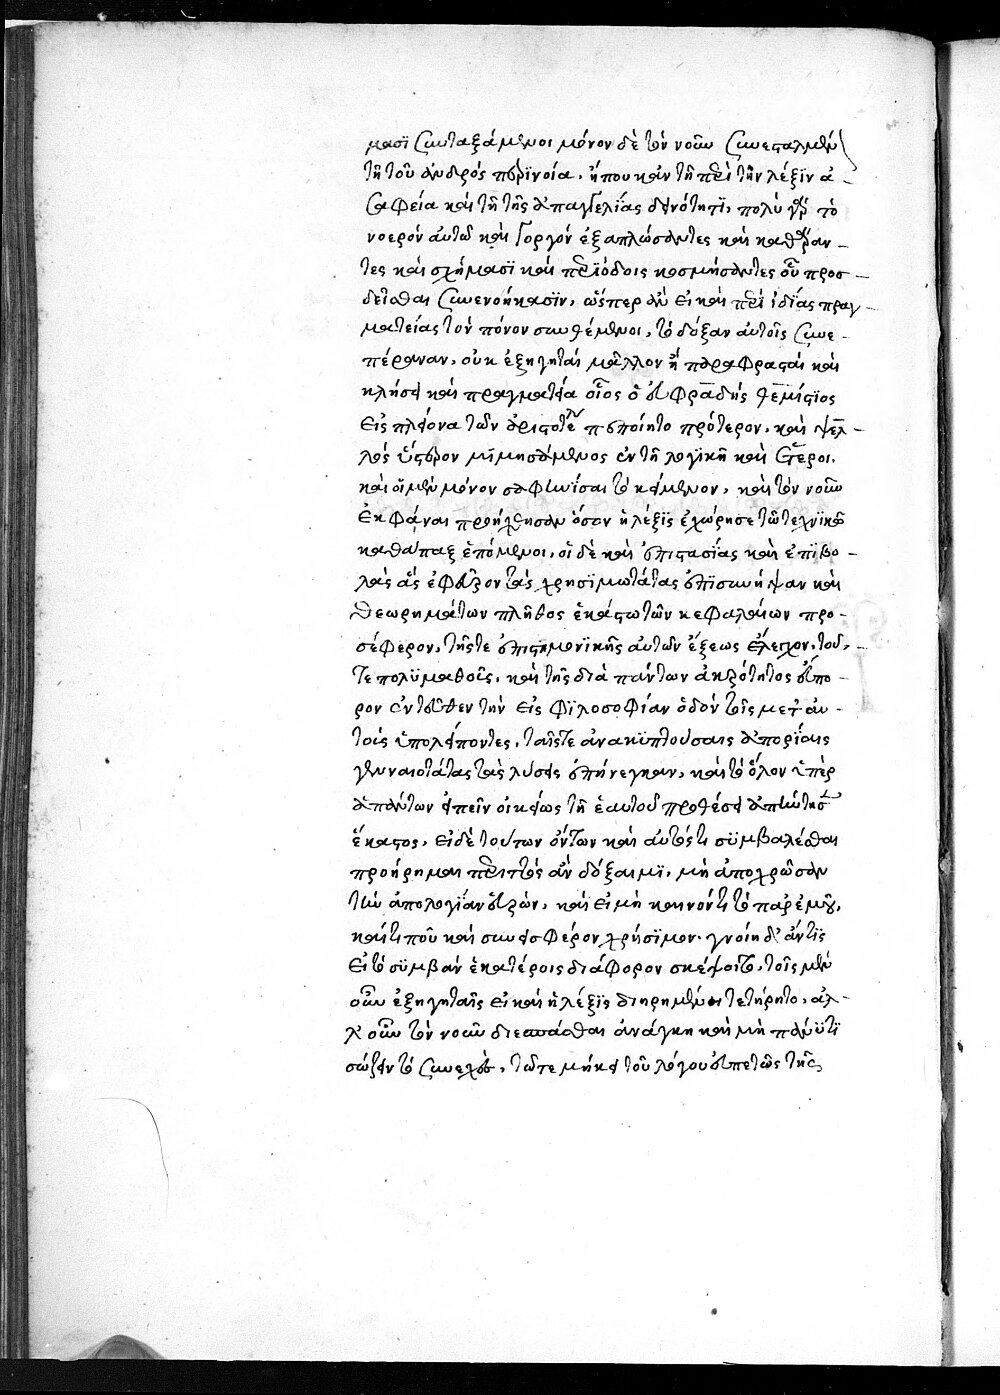 μασϊ συνταξάμενοι μόνον δὲ τὸν νοῦν συνεσταλμέν
τῆ τοῦ ἀνδρὸς περϊνοία, ἤπου κἀν τῆ περὶ τὴν λέξϊν ἀ-
σαφεία καὶ τῆ τῆς ἀπαγγελΐας δεινότητϊ, πολὺ γὰρ τὸ
νοερὸν αὐτῶ καὶ γοργὸν ἐξαπλώσαντες καὶ καθάραν-
τες καὶ σχήμασϊ καὶ περϊόδοις κοσμήσαντες οὗ προσ-
δεῖσθαι συνενοήκασϊν, ὥσπερ ἂν εἰ καὶ περὶ ἰδίας πραγ-
ματείας τὸν πόνον συνθέμενοι, τὸ δόξαν αὐτοῖς συνε-
πέραναν, οὐκ ἐξηγηταὶ μᾶλλον ἢ παραφρασταὶ καὶ
κλήσει καὶ πραγματεία οἷος ὁ εὐφραδὴς θεμίστϊος
εἰς πλείονα τῶν ἀριστοτέλ πεποίητο πρότερον, καὶ ψελ-
λὸς ὕστερον μϊμησάμενος ἐν τῆ λογϊκῆ καὶ ἕτεροι.
καὶ οἱ μὲν μόνον σαφηνίσαι τὸ κείμενον, καὶ τὸν νοῦν
ἐκφᾶναι προήχθησαν ὅσον ἡ λέξϊς ἐχώρησε τῶ τεχνϊκῶ
καθάπαξ ἑπόμενοι, οἱ δὲ καὶ ἐπιστασίας καὶ ἐπϊβο-
λὰς ἃς ἐφεῦρον τὰς χρησϊμωτάτας ἐπϊσυνῆψαν καὶ
θεωρημάτων πλῆθος ἑκάστω τῶν κεφαλαίων προ-
σέφερον, τῆς τε ἐπιστημονϊκῆς αὐτῶν ἕξεως ἔλεγχον, τοῦ-
τε πολϋμαθοῦς, καὶ τῆς διὰ πάντων ἀκρότητος εὔπο-
ρον ἐντεῦθεν τὴν εἰς φϊλοσοφίαν ὁδὸν τοῖς μετ' αὐ-
τοὺς ὑπολείποντες, ταῖς τε ἀνακϋπτούσαις ἀπορΐαις
γενναιοτάτας τὰς λύσεις ἐπήνεγκαν, καὶ τὸ ὅλον ὑπὲρ
ἁπάντων εἰπεῖν οἰκείως τῆ ἑαυτοῦ προθέσει ἀπήντησ
ἕκαστος, εἰ δὲ τούτων ὄντων καὶ αὐτός τι σϋμβαλέσθαι
προήρημαι περιττὸς ἂν δόξαιμϊ, μὴ ἀποχρῶσαν
τὴν ἀπολογΐαν εὑρών, καὶ εἰ μὴ καινόν τι τὸ παρ' ἐμοῦ,
καί τι που καὶ συνεισφέρον χρήσϊμον. γνοίη δ' ἄν τϊς
εἰ τὸ σϋμβὰν ἑκατέροις διάφορον σκέψοιτο, τοῖς μὲν
οὖν ἐξηγηταῖς εἰ καὶ ἡ λέξϊς διηρημένοι τετήρητο, ἀλ-
λ' οὖν τὸν νοῦν διεσπάσθαι ἀνάγκη καὶ μὴ πάνϋ τϊ
σώζειν τὸ συνεχές, τῶ τε μήκει τοῦ λόγου εὐπετῶς τῆς